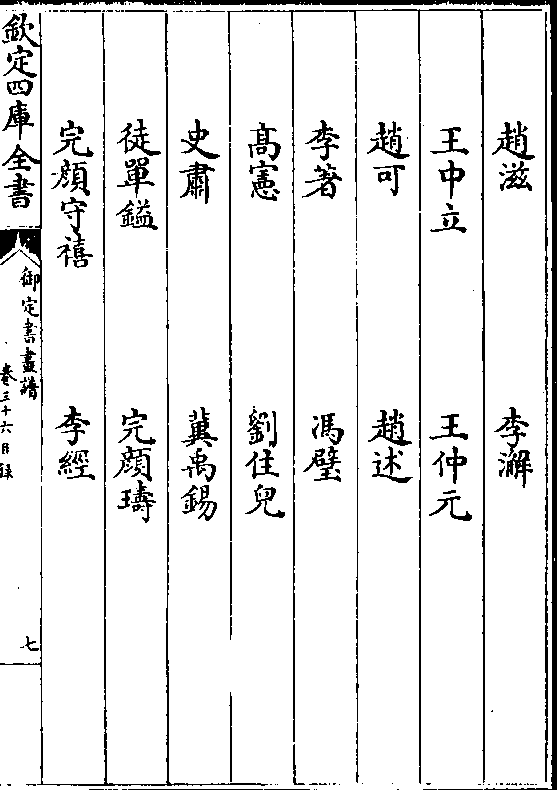 趙滋 李澥
王中立 王仲元
趙可 趙述
李著 馮璧
高憲 劉住兒
史肅 冀禹錫
徒單鎰 完顔璹
完顔守禧 李經
欽定四庫全書
御定書畫譜
卷三十六目錄
七